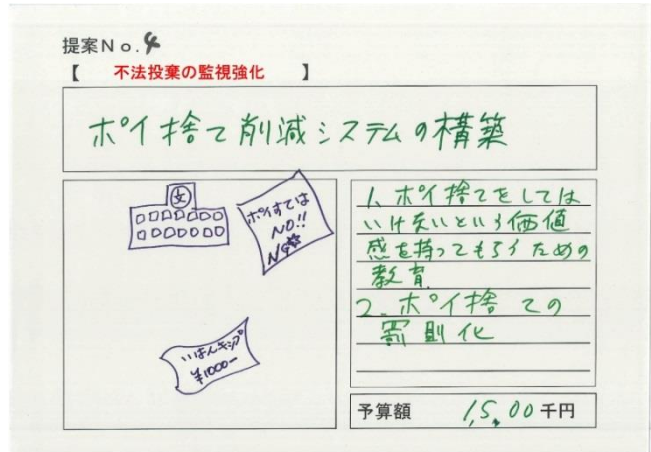 提案No.4
【 不法投棄の監視強化 】
ポイ捨て削減システムの構築
文
ポイすては
NO!!
NG
いはんキップ
¥1000-
1. ポイ捨てをしては
いけないという価値
感を持ってもらうための
教育
2. ポイ捨ての
罰則化
予算額 1,500千円